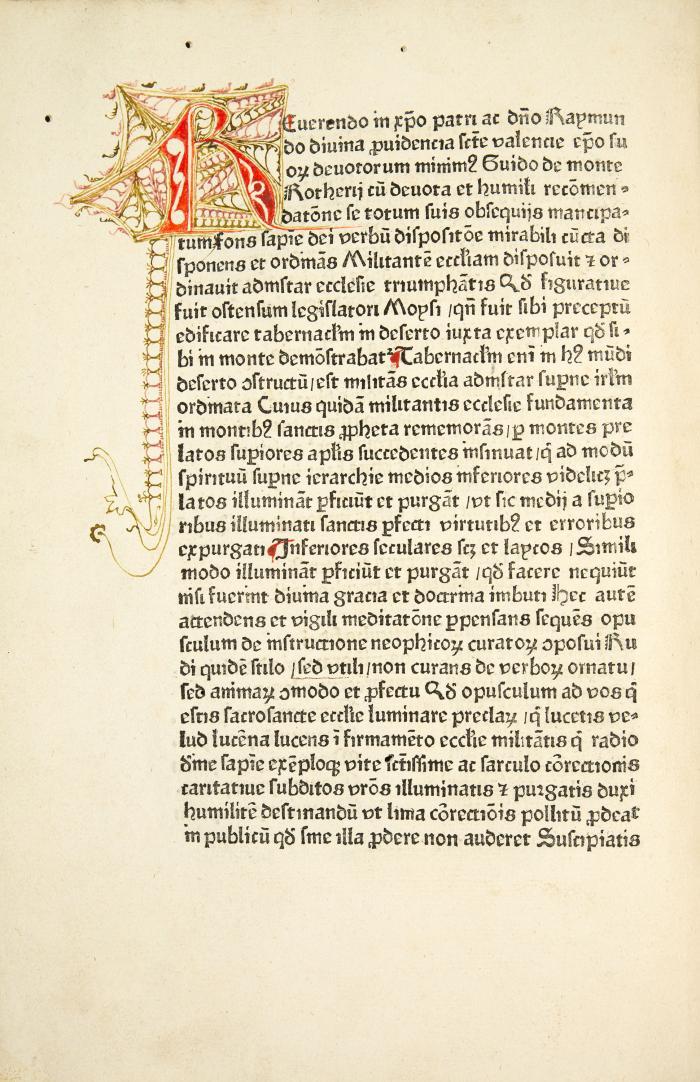 REuerendo in xp̄o patri ac dn̄o Raymun
do diuina ꝓuidencia scte valencie ep̄o su
oꝝ deuotorum minimꝰ Guido de monte
Rotherij cū deuota et humili recōmen⸗
datōne se totum suis obsequijs mancipa⸗
tum fons sapīe dei verbū dispositōe mirabili cūcta di
sponens et ordinās Militantē eccliam disposuit ⁊ or⸗
dinauit adinstar ecclesie triumphātis Qd̄ figuratiue
fuit ostensum legislatori Moysi /qn̄ fuit sibi preceptū
edificare tabernaclm in deserto iuxta exemplar qd̄ si⸗
bi in monte demōstrabatᷣ Tabernaclm enī in hꝰ mūdi
deserto ↄstructū/est militās ecclia adinstar supne irlm
ordinata Cuius quidā militantis ecclesie fundamenta
in montibꝰ sanctis ꝓpheta rememorās/ꝑ montes pre
latos suꝑiores aplis succedentes insinuat /q̄ ad modū
spirituū suꝑne ierarchie medios inferiores videlicꝫ p̄⸗
latos illumināt ꝑficiūt et purgāt /vt sic medij a suꝑio
ribus illuminati sanctis ꝑfecti virtutibꝰ et erroribus
expurgati Inferiores seculares scꝫ et laycos / Simili
modo illumināt ꝑficiūt et purgāt /qd̄ facere nequiūt
nisi fuerint diuina gracia et doctrina imbuti Hec autē
attendens et vigili meditatōne ꝑpensans sequēs opu
sculum de instructione neophicoꝝ curatoꝝ ↄposui Ru
di quidē stilo /sed vtili/non curans de verboꝝ ornatu/
sed animaꝝ ↄmodo et ꝓfectu Qd̄ opusculum ad vos q̄
estis sacrosancte ecclie luminare preclaꝝ /q̄ lucetis ve⸗
lud lucēna lucens ī firmamēto ecclie militātis q̄ radio
dīne sapīe exēploqꝫ vite sctīssime ac sarculo cōrectionis
caritatiue subditos vrōs illuminatis ⁊ purgatis duxi
humilitē destinandū vt lima cōrectiōis pollitū ꝓdeat
in publicū qd̄ sine illa ꝓdere non auderet Suscipiatis